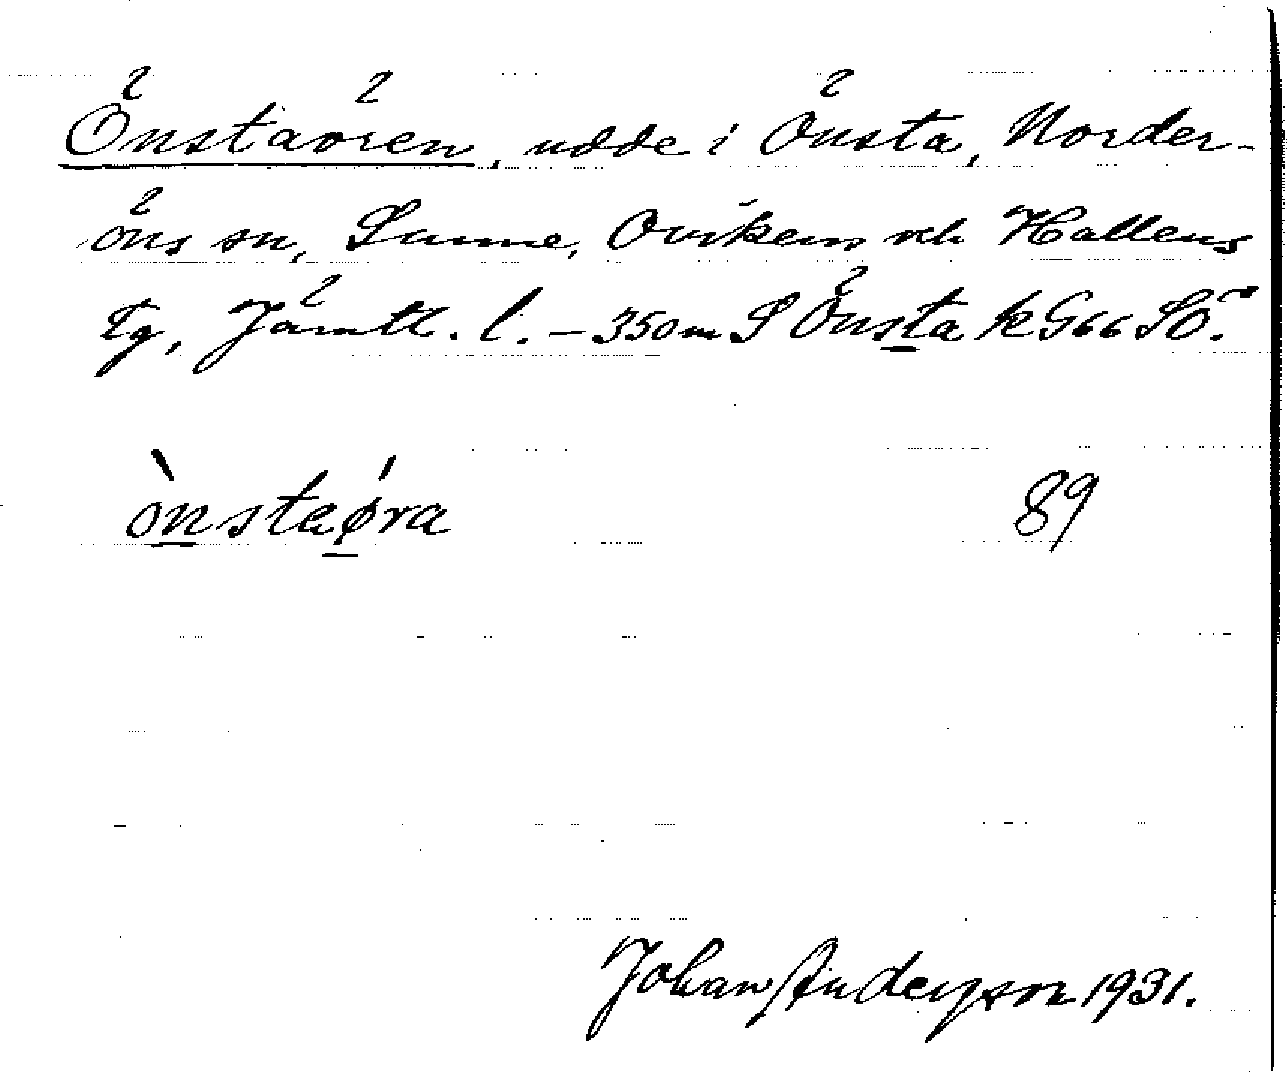 Önstaören, udde i Önsta, Norder-
öns sn, Sunne, Ovikens och Hallens
tg, Jämtl. l. – 350 m S Önsta k G66 SÖ.
ònstaǿra 89
Johan Anderson 1931.